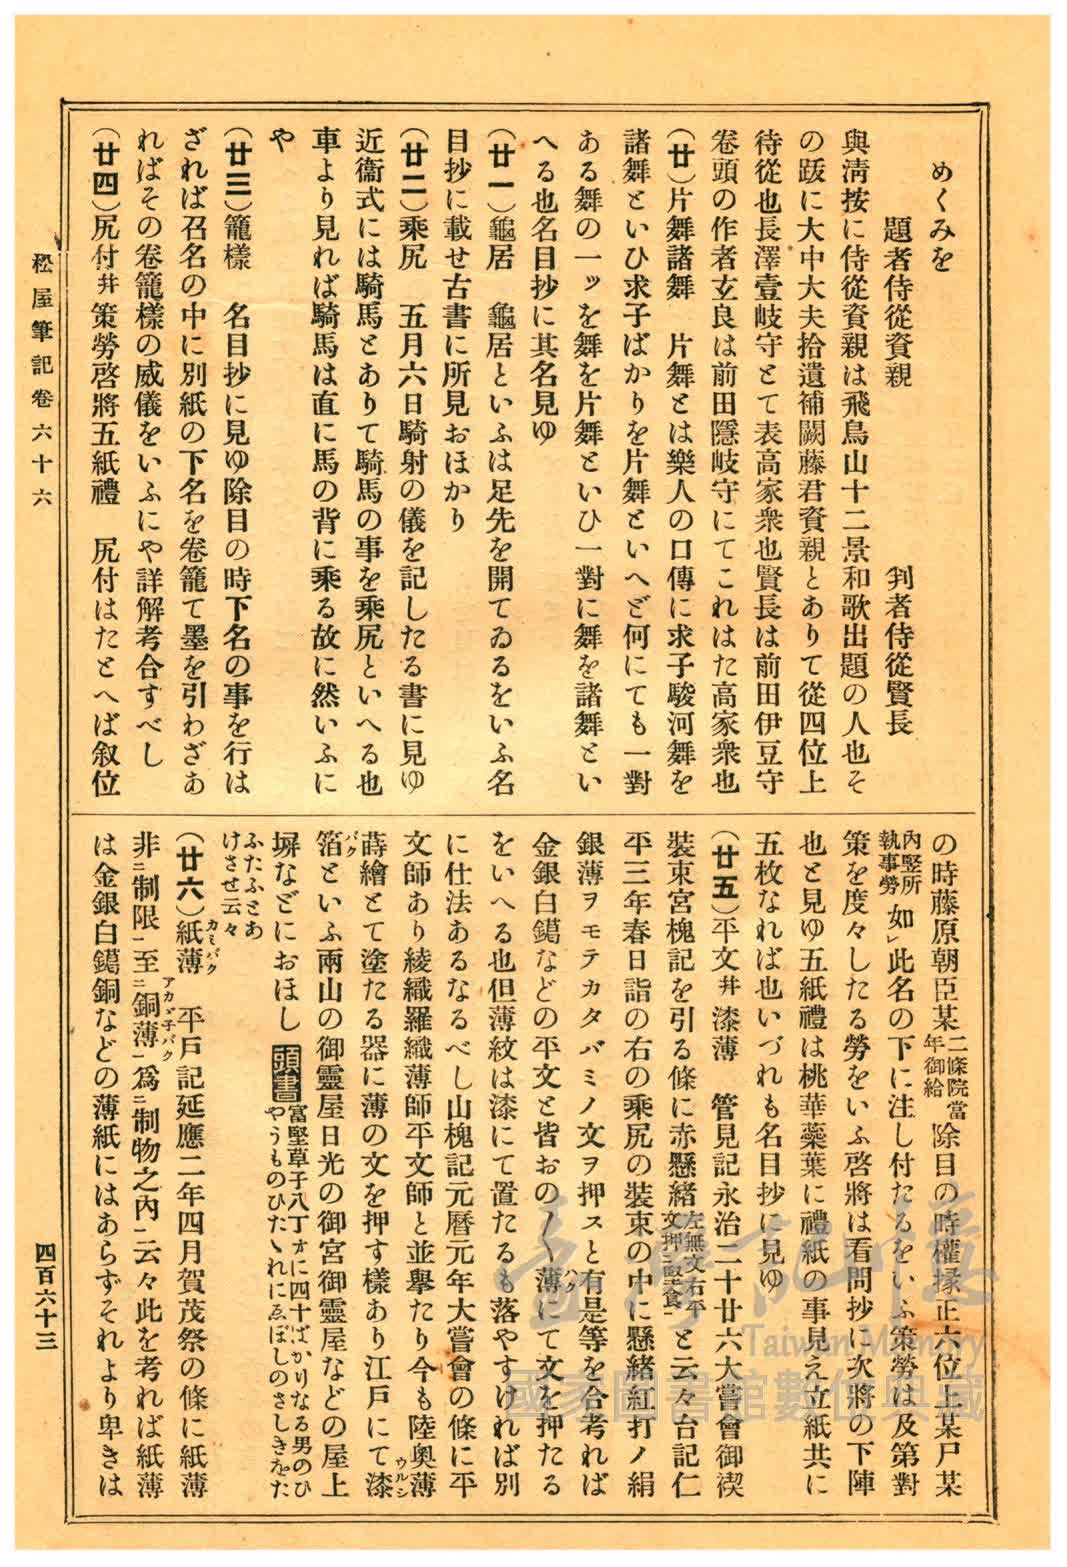 めくみを
題者侍從資親　　　　判者侍從賢長
與淸按に侍從資親は飛鳥山十二景和歌出題の人也そ
の跋に大中大夫拾遺補闕藤君資親とありて從四位上
侍從也長澤壹岐守とて表高家衆也賢長は前田伊豆守
卷頭の作者玄良は前田隱岐守にてこれはた高家衆也
（廿）片舞諸舞　片舞とは樂人の口傳に求子駿河舞を
諸舞といひ求子ばかりを片舞といへど何にても一對
ある舞の一ッを舞を片舞といひ一對に舞を諸舞とい
へる也名目抄に其名見ゆ
（廿一）龜居　龜居といふは足先を開てゐるをいふ名
目抄に載せ古書に所見おほかり
（廿二）乘尻　五月六日騎射の儀を記したる書に見ゆ
近衞式には騎馬とありて騎馬の事を乘尻といへる也
車より見れば騎馬は直に馬の背に乘る故に然いふに
や
（廿三）籠樣　名目抄に見ゆ除目の時下名の事を行は
ざれば召名の中に別紙の下名を卷籠て墨を引わざあ
ればその卷籠樣の威儀をいふにや詳解考合すべし
（廿四）尻付幷策勞啓將五紙禮　尻付はたとへば叙位
の時藤原朝臣某二條院當年御給除目の時權掾正六位上某尸某
內竪所執事勞如レ此名の下に注し付たるをいふ策勞は及第對
策を度々したる勞をいふ啓將は看聞抄に次將の下陣
也と見ゆ五紙禮は桃華蘂葉に禮紙の事見え立紙共に
五枚なれば也いづれも名目抄に見ゆ
（廿五）平文幷漆薄　管見記永治二十廿六大嘗會御禊
裝束宮槐記を引る條に赤懸緖左無文右平文押二竪食一と云々台記仁
平三年春日詣の右の乘尻の裝束の中に懸緖紅打ノ絹
銀薄ヲモテカタバミノ文ヲ押スと有是等を合考れば
金銀白鑞などの平文と皆おの〱薄ハクにて文を押たる
をいへる也但薄紋は漆にて置たるも落やすければ別
に仕法あるなるべし山槐記元曆元年大嘗會の條に平
文師あり綾織羅織薄師平文師と並擧たり今も陸奧薄
蒔繪とて塗たる器に薄の文を押す樣あり江戶にて漆ウルシ
箔バクといふ兩山の御靈屋日光の御宮御靈屋などの屋上
塀などにおほし頭書富竪草子八丁オに四十ばかりなる男のひ
やうものひたゝれにゑぼしのさしきをた
ふたふとあ
けさせ云々
（廿六）紙薄カミバク　平戶記延應二年四月賀茂祭の條に紙薄
非二制限一至二銅薄アカヾネバク一爲二制物之內一云々此を考れば紙薄
は金銀白鑞銅などの薄紙にはあらずそれより卑きは
松屋筆記卷六十六
四百六十三
臺灣記憶
Taiwan Memory
國家圖書館數位典藏